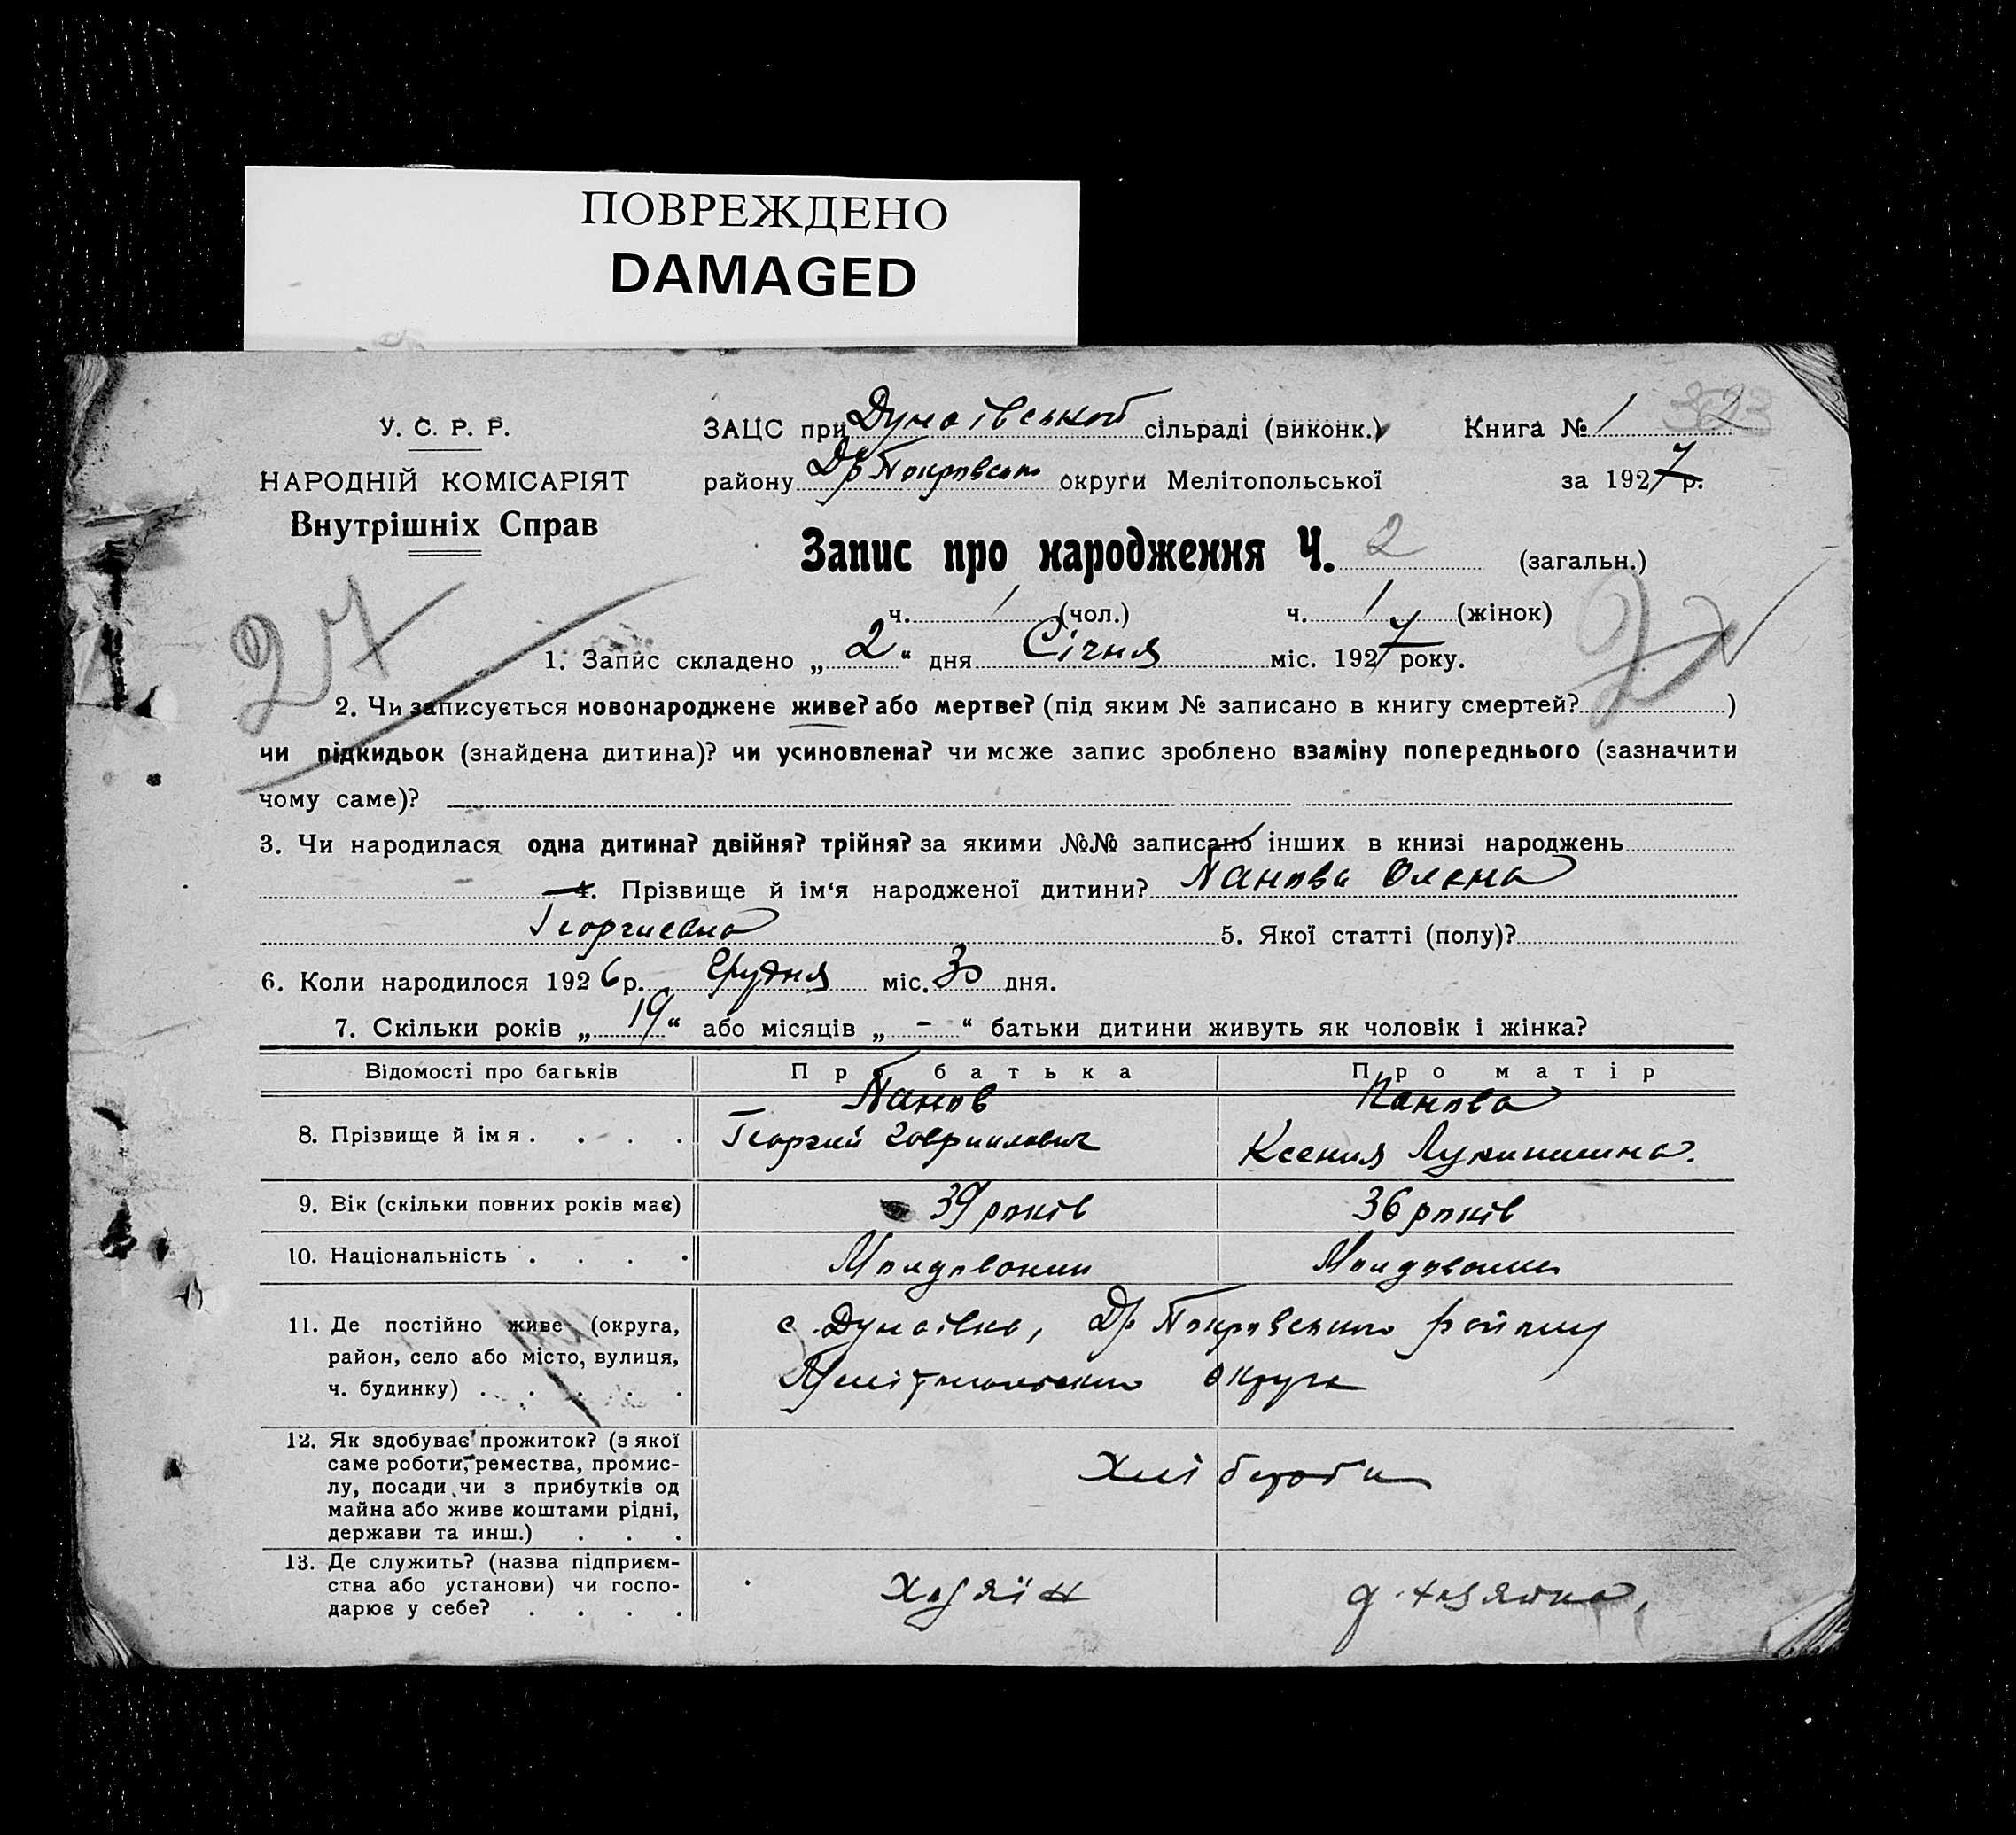 ПОВРЕЖДЕНО
DAMAGED
У. С. Р. Р.
НАРОДНІЙ КОМІСАРІЯТ
Внутрішніх Справ
ЗАЦС при Дунаівській сільраді (виконк.)
Книга № 1
району Др Покровськ округи Мелітопольської
за 1927 р.
Запис про народження Ч. 2 (загальн.)
ч. 1 (чол.) ч. 1 (жінок)
27
1. Запис складено „ 2 “ дня Січня міс. 1927 року.
2. Чи записується новонароджене живе? або мертве? (під яким № записано в книгу смертей? )
чи підкидьок (знайдена дитина)? чи усиновлена? чи може запис зроблено взаміну попереднього (зазначити
чому саме)?
3. Чи народилася одна дитина? двійня? трійня? за якими №№ записано інших в книзі народжень
4. Прізвище й ім‘я народженої дитини? Панова Олена
Георгиевна 5. Якої статті (полу)?
6. Коли народилося 1926 р. Грудня міс. 30 дня.
7. Скільки років „ 19 “ або місяців „ - “ батьки дитини живуть як чоловік і жінка?
Відомості про батьків Про батька Про матір
8. Прізвище й імя . . . . Панов Панова
Георгий Гавриилович Ксения Лукинишна.
9. Вік (скільки повних років має) 39 років 36 років
10. Національність . . . . Молдовании Молдовании
11. Де постійно живе (округа,
район, село або місто, вулиця,
ч. будинку) . . . . .
с. Дунаівка, Др Покровського району
Мелітопольского округа
12. Як здобуває прожиток? (з якої
саме роботи, ремества, промис-
лу, посади чи з прибутків од
майна або живе коштами рідні,
держави та инш.) . . .
Хлібороби
13. Де служить? (назва підприєм-
ства або установи) чи госпо-
дарює у себе? . . . .
Хазяїн д. хазяйка,